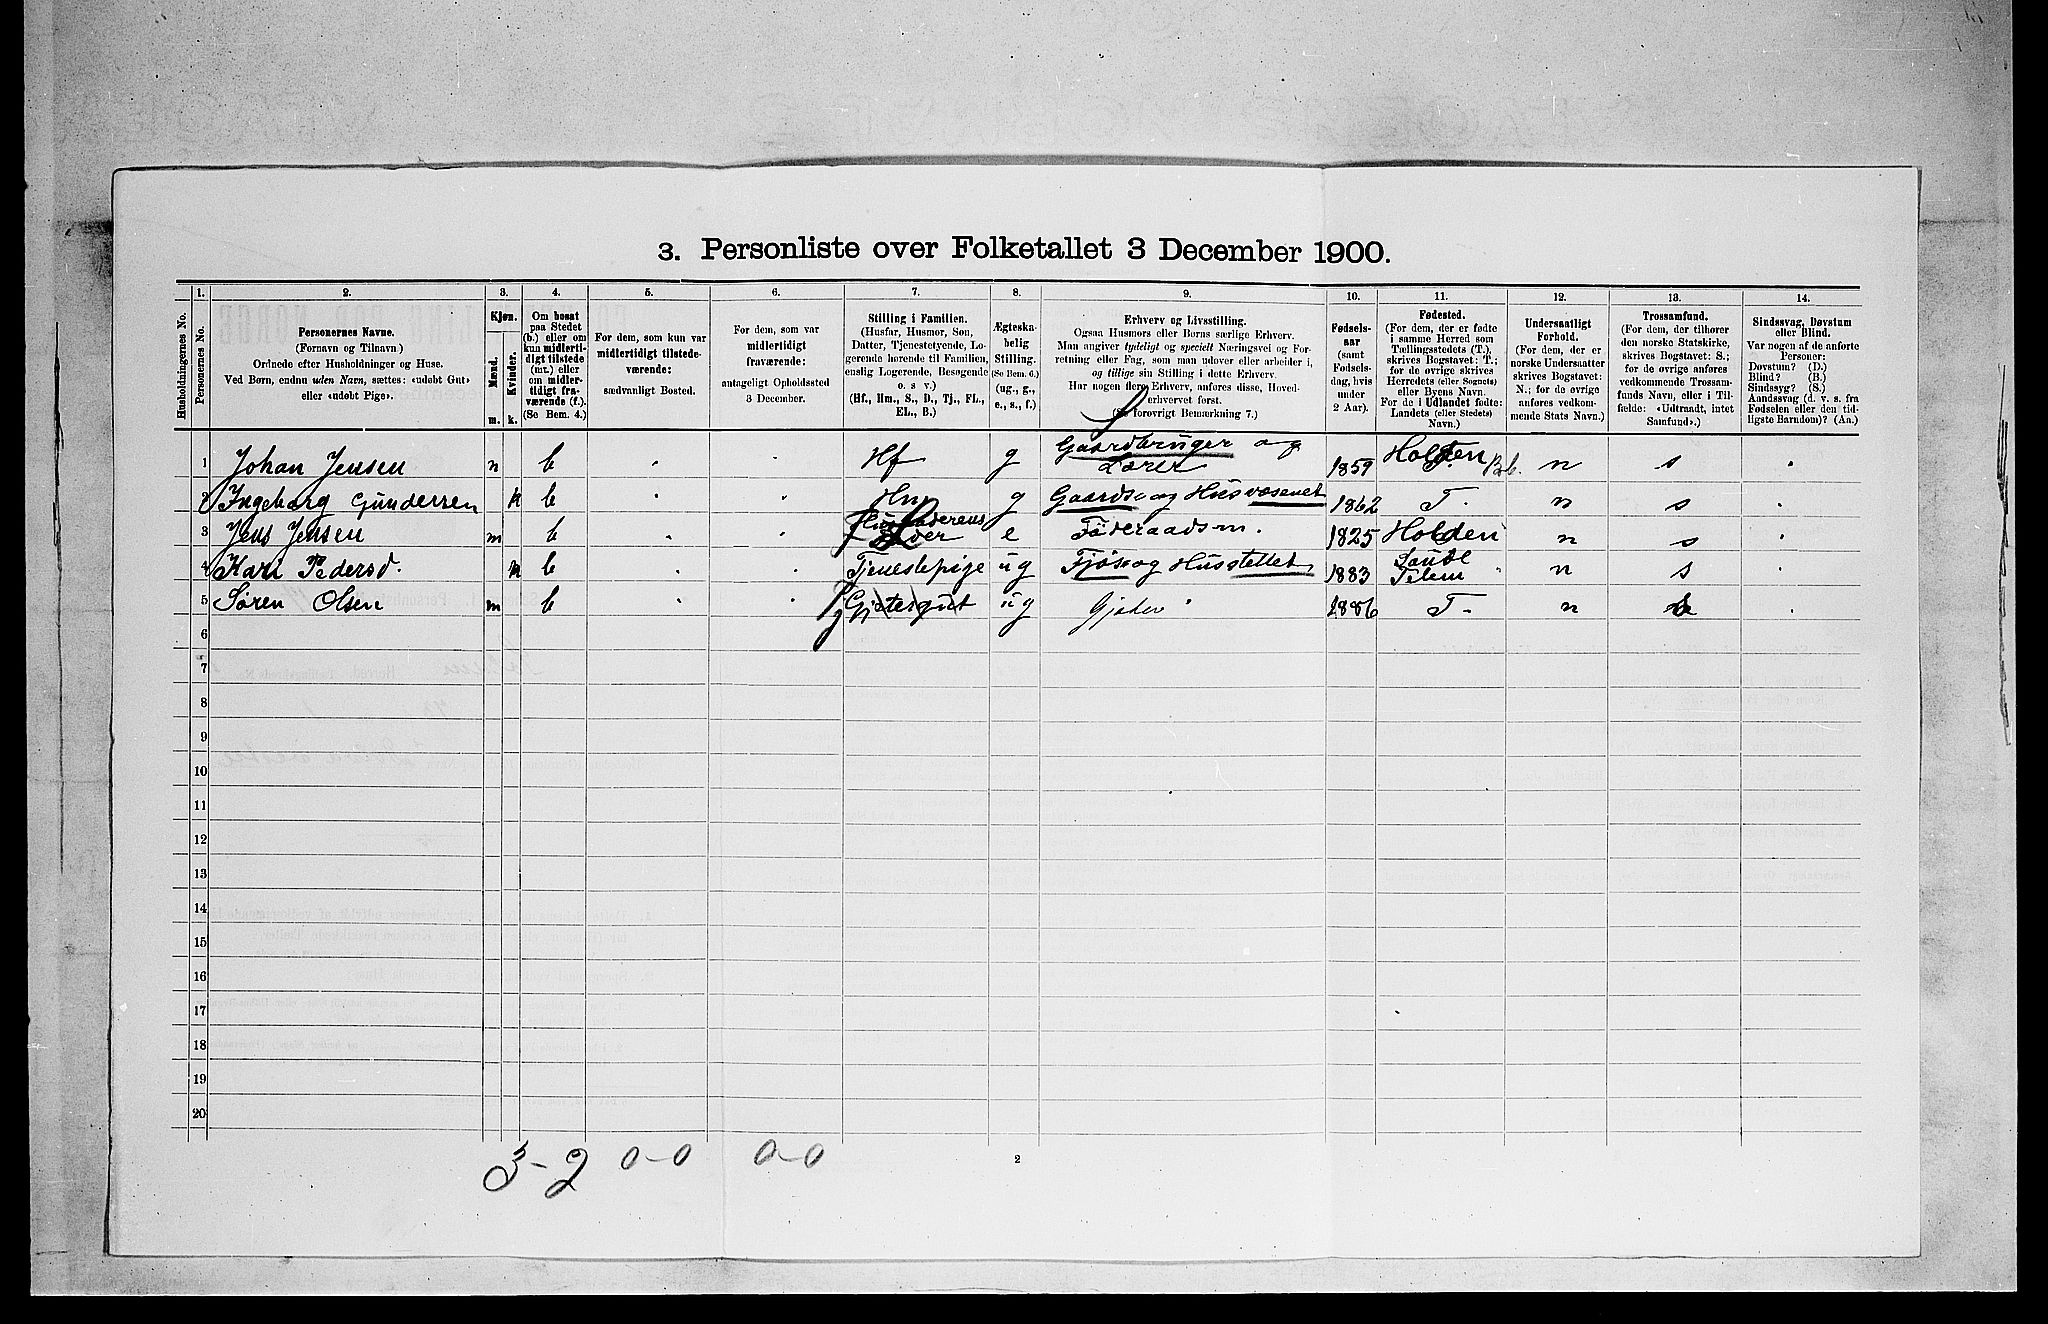 3. Personliste over Folketallet 3 December 1900.
1. 2. 3. 4. 5. 6. 7. 8. 9. 10. 11. 12. 13. 14.
Husholdningernes No.
Personernes No.
Personernes Navne.
(Fornavn og Tilnavn)
Ordnede efter Husholdninger og Huse.
Ved Børn, endnu uden Navn, sættes: «udøbt Gut»
eller «udøbt Pige».
Kjøn.
Mænd.
Kvinder.
m. k.
Om bosat
paa Stedet
(b.) eller om
kun midlerti-
digt tilstede
(mt.) eller
om midler-
tidigt fra-
værende (f.).
(Se Bem. 4.)
For dem, som kun var
midlertidigt tilstede-
værende:
sædvanligt Bosted.
For dem, som var
midlertidigt
fraværende:
antageligt Opholdssted
3 December.
Stilling i Familien.
(Husfar, Husmor, Søn,
Datter, Tjenestetyende, Lo-
gerende hørende til Familien,
enslig Logerende, Besøgende
o. s v.)
(Hf., Hm., S., D., Tj., FL.,
EL., B.)
Ægteska-
belig
Stilling.
(Se Bem. 6.)
(ug., g.,
e., s., f.)
Erhverv og Livsstilling.
Ogsaa Husmors eller Børns særlige Erhverv.
Man angiver tydeligt og specielt Næringsvei og For-
retning eller Fag, som man udøver eller arbeider i,
og tillige sin Stilling i dette Erhverv.
Har nogen flere Erhverv, anføres disse, Hoved-
erhvervet først.
(Se forøvrigt Bemærkning 7.)
Fødsels-
aar
(samt
Fødsels-
dag, hvis
under
2 Aar).
Fødested.
(For dem, der er fødte
i samme Herred som
Tællingsstedets (T.),
skrives Bogstavet: T.;
for de øvrige skrives
Herredets (eller Sognets)
eller Byens Navn.
For de i Udlandet fødte:
Landets (eller Stedets)
Navn.)
Undersaatligt
Forhold.
(For dem, der er
norske Undersaatter
skrives Bogstavet:
N.; for de øvrige
anføres vedkom-
mende Stats Navn.)
Trossamfund.
(For dem, der tilhører
den norske Statskirke,
skrives Bogstavet: S.;
for de øvrige anføres
vedkommende Trossam-
funds Navn, eller i Til-
fælde: «Udtraadt, intet
Samfund».)
Sindssvag, Døvstum
eller Blind.
Var nogen af de anførte
Personer:
Døvstum? (D.)
Blind? (B.)
Sindssyg? (S.)
Aandssvag (d. v. s. fra
Fødselen eller den tid-
ligste Barndom)? (Aa.)
1 Johan Jensen m b Hf g Gaardbruger og Lærer 1859 Holden n s
2 Ingeborg Gundersen k b Hm g Gaards og Husvæsenet 1862 T. n s
3 Jens Jensen m b Husfaderens e Føderaadsm. 1825 Holden n s
4 Kari Pedersd. k b Tjenestepige ug Fjøs og Husstellet 1883 Telem n s
5 Søren Olsen m b Tj Gjætergut ug Gjæter 1886 T. n s
6
7
8
9
10
11
12
13
14
15
16
17
18
19
20
3-2 0-0 0-0
2